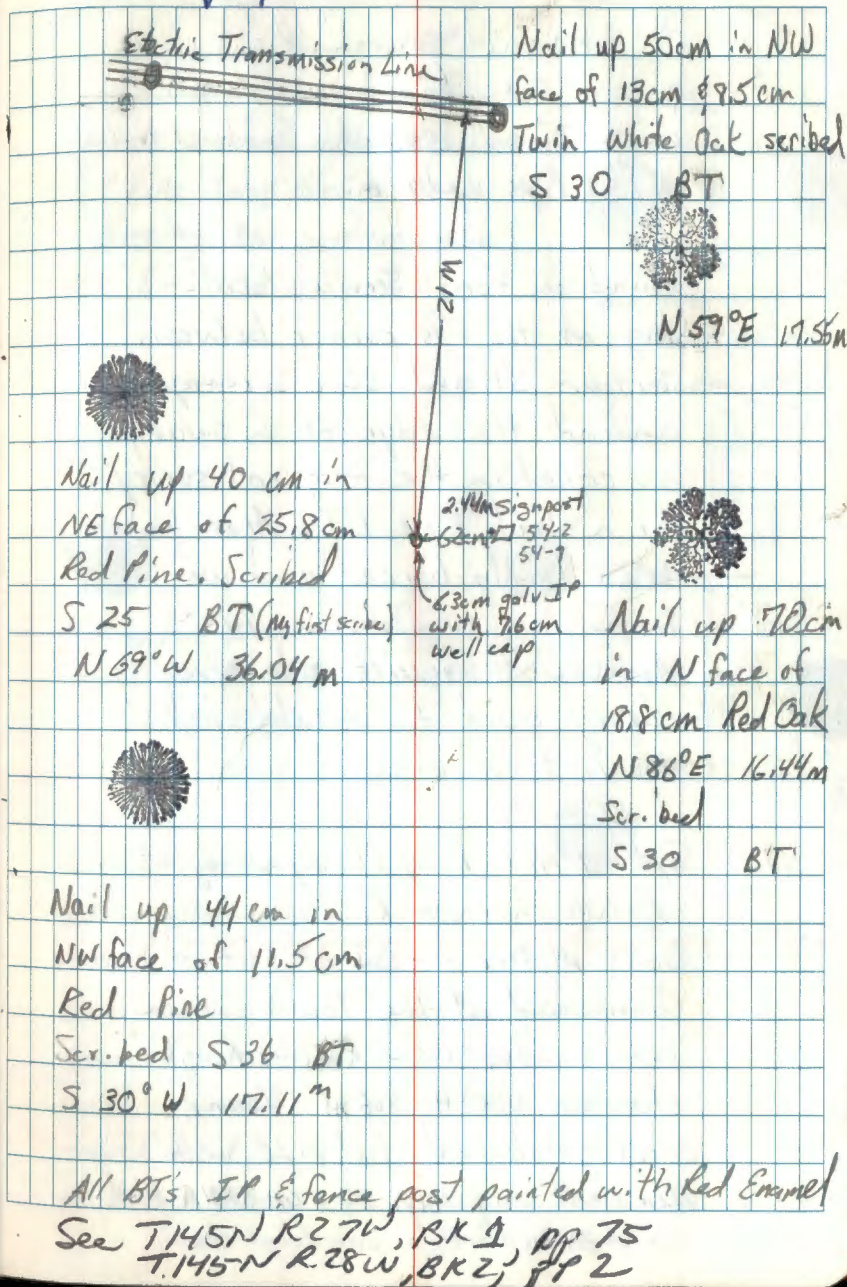 Electric Transmission Line
Nail up 50cm in NW
face of 13cm & 8.5cm
Twin White Oak scribed
S 30 BT
N 59°E 17.55m
21M
Nail up 40 cm in
NE face of 25.8cm
Red Pine. Scribed
S 25 BT (my first scribe)
N 69°W 36.04 m
2.44m signpost
62cm 54-2
54-9
6.3cm galv IP
with 7.6cm
well cap
Nail up 70cm
in N face of
18.8cm Red Oak
N 86°E 16.44m
Scribed
S 30 BT
Nail up 44 cm in
NW face of 11.5 cm
Red Pine
Scribed S 36 BT
S 30° W 17.11m
All BT's IP & fence post painted with Red Enamel
See T145N R27W, BK 1, pp 75
T.145N R.28W, BK 2, pp 2